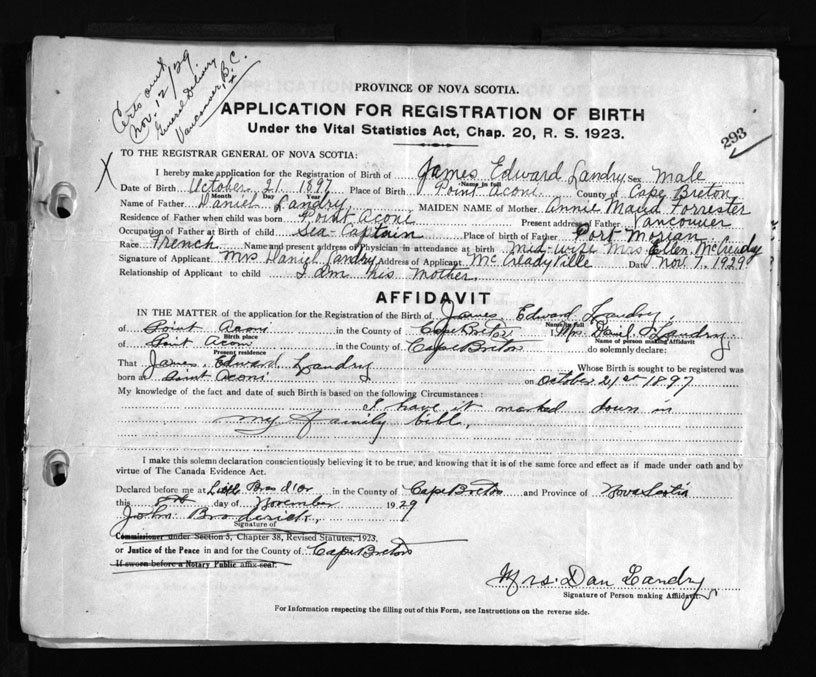 Certs out
Nov. 12/29
General Delivery
Vancouver, B.C.
PROVINCE OF NOVA SCOTIA.
APPLICATION FOR REGISTRATION OF BIRTH
Under the Vital Statistics Act, Chap. 20, R. S. 1923.
293
TO THE REGISTRAR GENERAL OF NOVA SCOTIA:
X
I hereby make application for the Registration of Birth of James Edward Landry Sex Male
Name in full
Date of Birth October 21 1897 Place of Birth Point Aconi County of Cape Breton
Month Day Year
Name of Father Daniel Landry MAIDEN NAME of Mother Annie Maud Forrester
Residence of Father when child was born Point Aconi Present address of Father Vancouver
Occupation of Father at Birth of child Sea-Captain Place of birth of Father Port Morian
Race French Name and present address of Physician in attendance at birth Mid-wife Mrs Ellen McCready
Signature of Applicant Mrs Daniel Landry Address of Applicant McCreadyville Date Nov 7, 1929
Relationship of Applicant to child I am his mother
AFFIDAVIT
IN THE MATTER of the application for the Registration of Birth of James Edward Landry,
Name in full
of Point Aconi in the County of Cape Breton I Mrs. Daniel Landry
Birth place Name of person making Affidavit
of Point Aconi in the County of Cape Breton do solemnly declare:
Present residence
That James Edward Landry Whose Birth is sought to be registered was
born at Point Aconi on October 21st 1897
My knowledge of the fact and date of such Birth is based on the following Circumstances:
I have it marked down in
my family bible,
I make this solemn declaration conscientiously believing it to be true, and knowing that it is of the same force and effect as if made under oath and by
virtue of The Canada Evidence Act.
Declared before me at Little Bras d'Or in the County of Cape Breton and Province of Nova Scotia
this day of November 1929
John Broderick,
Signature of
Commissioner under Section 5, Chapter 38, Revised Statutes, 1923,
or Justice of the Peace in and for the County of Cape Breton
If sworn before a Notary Public affix seal.
Mrs. Dan Landry,
Signature of Person making Affidavit
For Information respecting the filling out of this Form, see Instructions on the reverse side.